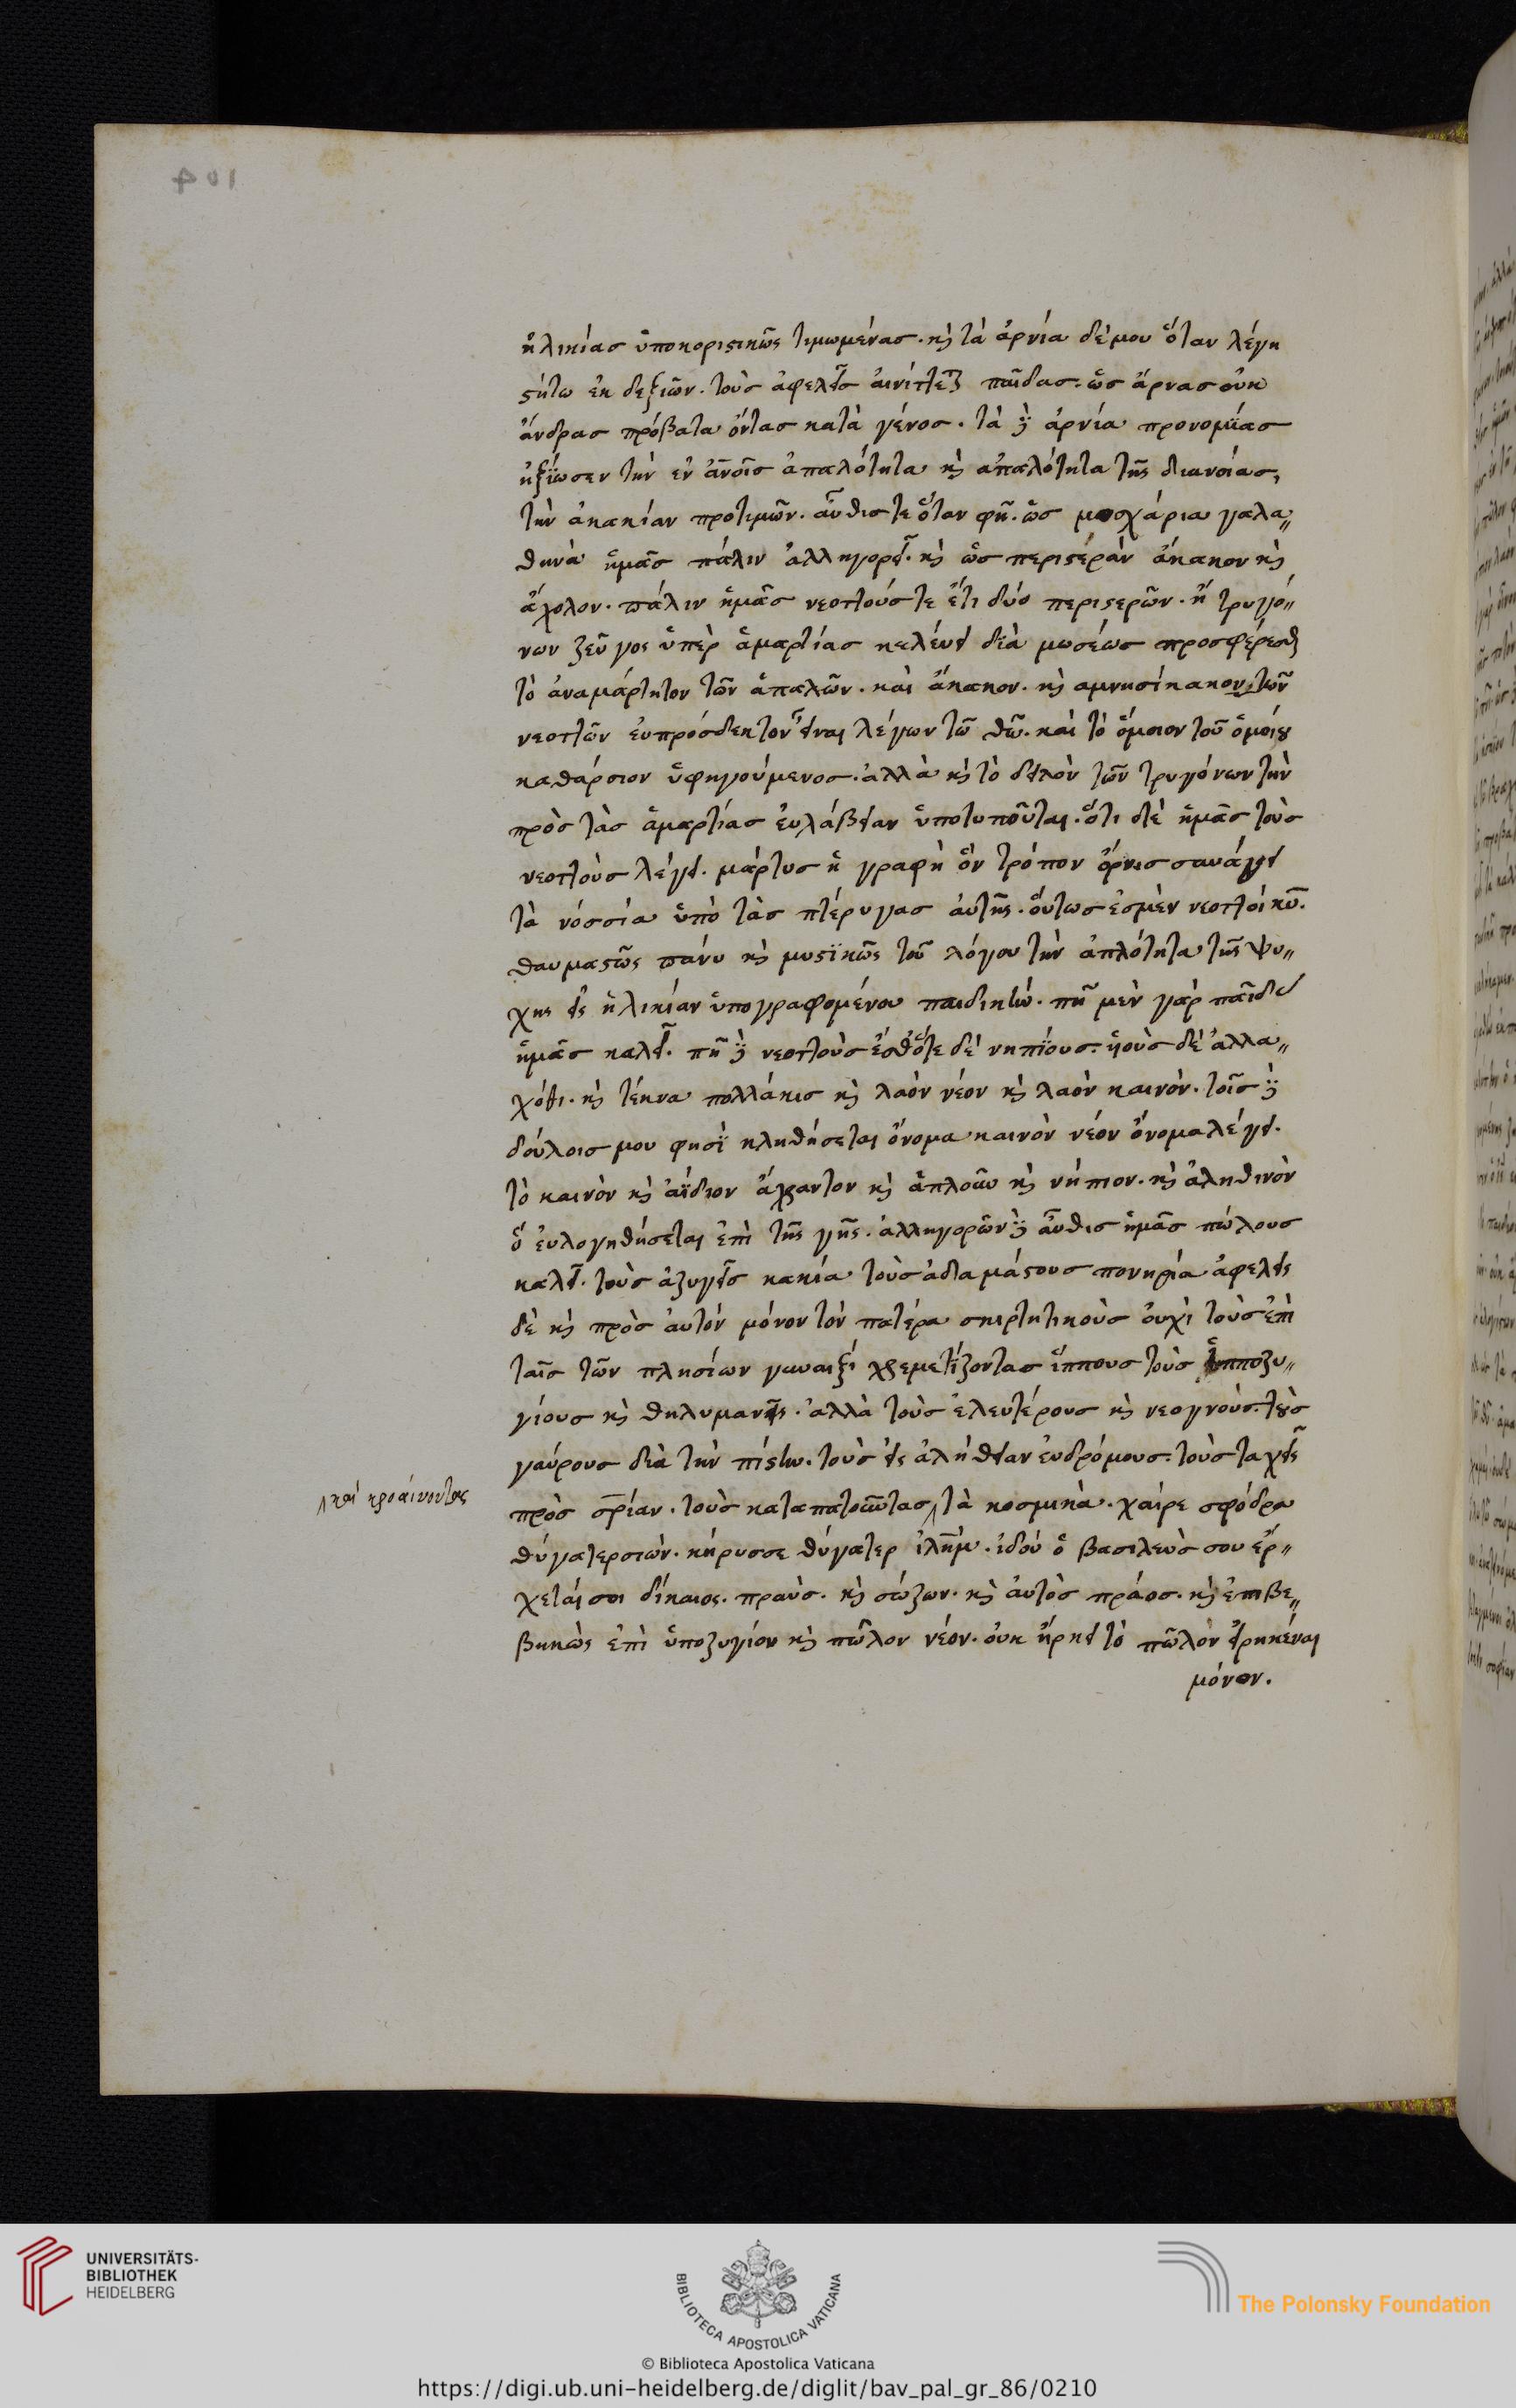 104
ἡλικίας ὑποκοριστικῶς τιμωμένας. κὶ τὰ ἀρνία δέ μου ὅταν λέγη
στήτω ἐκ δεξιῶν. τοὺς ἀφελεῖς αἰνίττεται παῖδας. ὡς ἄρνας οὐκ
ἄνδρας πρόβατα ὄντας κατὰ γένος. τὰ δὲ ἀρνία προνομίας
ἠξίωσεν τὴν ἐν ἀνοῖς ἁπαλότητα κὶ απαλότητα τῆς διανοίας,
τὴν ἀκακίαν προτιμῶν. αὖθίς τε ὅταν φῆ. ὡς μοσχάρια γαλα〃
θηνὰ ἡμᾶς πάλιν ἀλληγορεῖ. κὶ ὡς περιστερὰν ἄκακον κὶ
ἄχολον. πάλιν ἡμᾶς νεοττούς τε ἔτι δύο περιστερῶν. ἢ τρυγό〃
νων ζεῦγος ὑπὲρ ἁμαρτίας κελέυει διὰ μωσέως προσφέρεσθαι
τὸ ἀναμάρτητον τῶν ἁπαλῶν. καὶ ἄκακον. κὶ αμνησίκακον τῶν
νεοττῶν ἐυπρόσδεκτον εἶναι λέγων τῶ θῶ. καὶ τὸ ὅμοιον τοῦ ὁμοίου
καθάρσιον ὑφηγούμενος. ἀλλὰ κὶ τὸ δειλὸν τῶν τρυγόνων τὴν
πρὸς τὰς ἁμαρτίας ἐυλάβειαν ὑποτυποῦται. ὅτι δὲ ἡμᾶς τοὺς
νεοττοὺς λέγει. μάρτυς ἡ γραφὴ ὃν τρόπον ὄρνις συνάγει
τὰ νόσσία ὑπὸ τὰς πτέρυγας ἀυτῆς. ὅυτως ἐσμὲν νεοττοὶ κυ̅.
θαυμαστῶς πάνυ κὶ μυστϊκῶς τοῦ λόγου τὴν ἁπλότητα τῆς ψυ〃
χης εἰς ἡλικίαν ὑπογραφομένου παιδικὴν. πῆ μὲν γὰρ παῖδας
ἡμᾶς καλεῖ. πῆ δὲ νεοττοὺς ἔσθότε δὲ νηπϊους. ὑιοὺς δὲ ἀλλα〃
χόθι. κὶ τέκνα πολλάκις κὶ λαὸν νέον κὶ λαὸν καινὸν. τοῖς δὲ
δούλοις μου φησϊ κληθήσεται ὄνομα καινὸν νέον ὄνομα λέγει.
τὸ καινὸν κὶ ἀΐδιον ἄχραντον κὶ ἁπλοῦν κὶ νήπιον. κὶ ἀληθινὸν
ὃ ἐυλογηθήσεται ἐπὶ τῆς γῆς. ἀλληγορῶν δὲ αὖθις ἡμᾶς πώλους
καλεῖ. τοὺς ἀζυγεῖς κακία τοὺς ἀδαμάστους πονηρία ἀφελεῖς
δὲ κὶ πρὸς ἀυτὸν μόνον τὸν πατέρα σκιρτητικοὺς ὀυχὶ τοὺς ἐπὶ
ταῖς τῶν πλησίων γυναιξὶ χρεμετίζοντας ἵππους τοὺς ὑποζυ〃
γίους κὶ θηλυμανεῖς. ἀλλὰ τοὺς ἐλευτέρους κὶ νεογνούς. τοὺς
γαύρους διὰ τὴν πίστιν. τοὺς εἰς ἀλήθειαν ἐυδρόμους. τοὺς ταχεῖς
πρὸς σ̅ρίαν. τοὺς καταπατοῦντας ⁁ τὰ κοσμικὰ. χαίρε σφόδρα
⁁ καὶ κροαίνοντας
θύγατερ σιὼν. κήρυσσε θύγατερ ἱλη̅μ. ἰδού ὁ βασιλεὺς σου ἔρ〃
χεταί σοι δίκαιος. πραὺς. κὶ σώζων. κὶ ἀυτὸς πράος. κὶ ἐπιβε〃
βηκὼς ἐπὶ ὑποζυγίον κὶ πῶλον νέον. ὀυκ ἤρκει τὸ πῶλον εἰρηκέναι
μόνον.
UNIVERSITÄTS-
BIBLIOTHEK
HEIDELBERG
BIBLIOTECA APOSTOLICA VATICANA
The Polonsky Foundation
© Biblioteca Apostolica Vaticana
https://digi.ub.uni-heidelberg.de/diglit/bav_pal_gr_86/0210